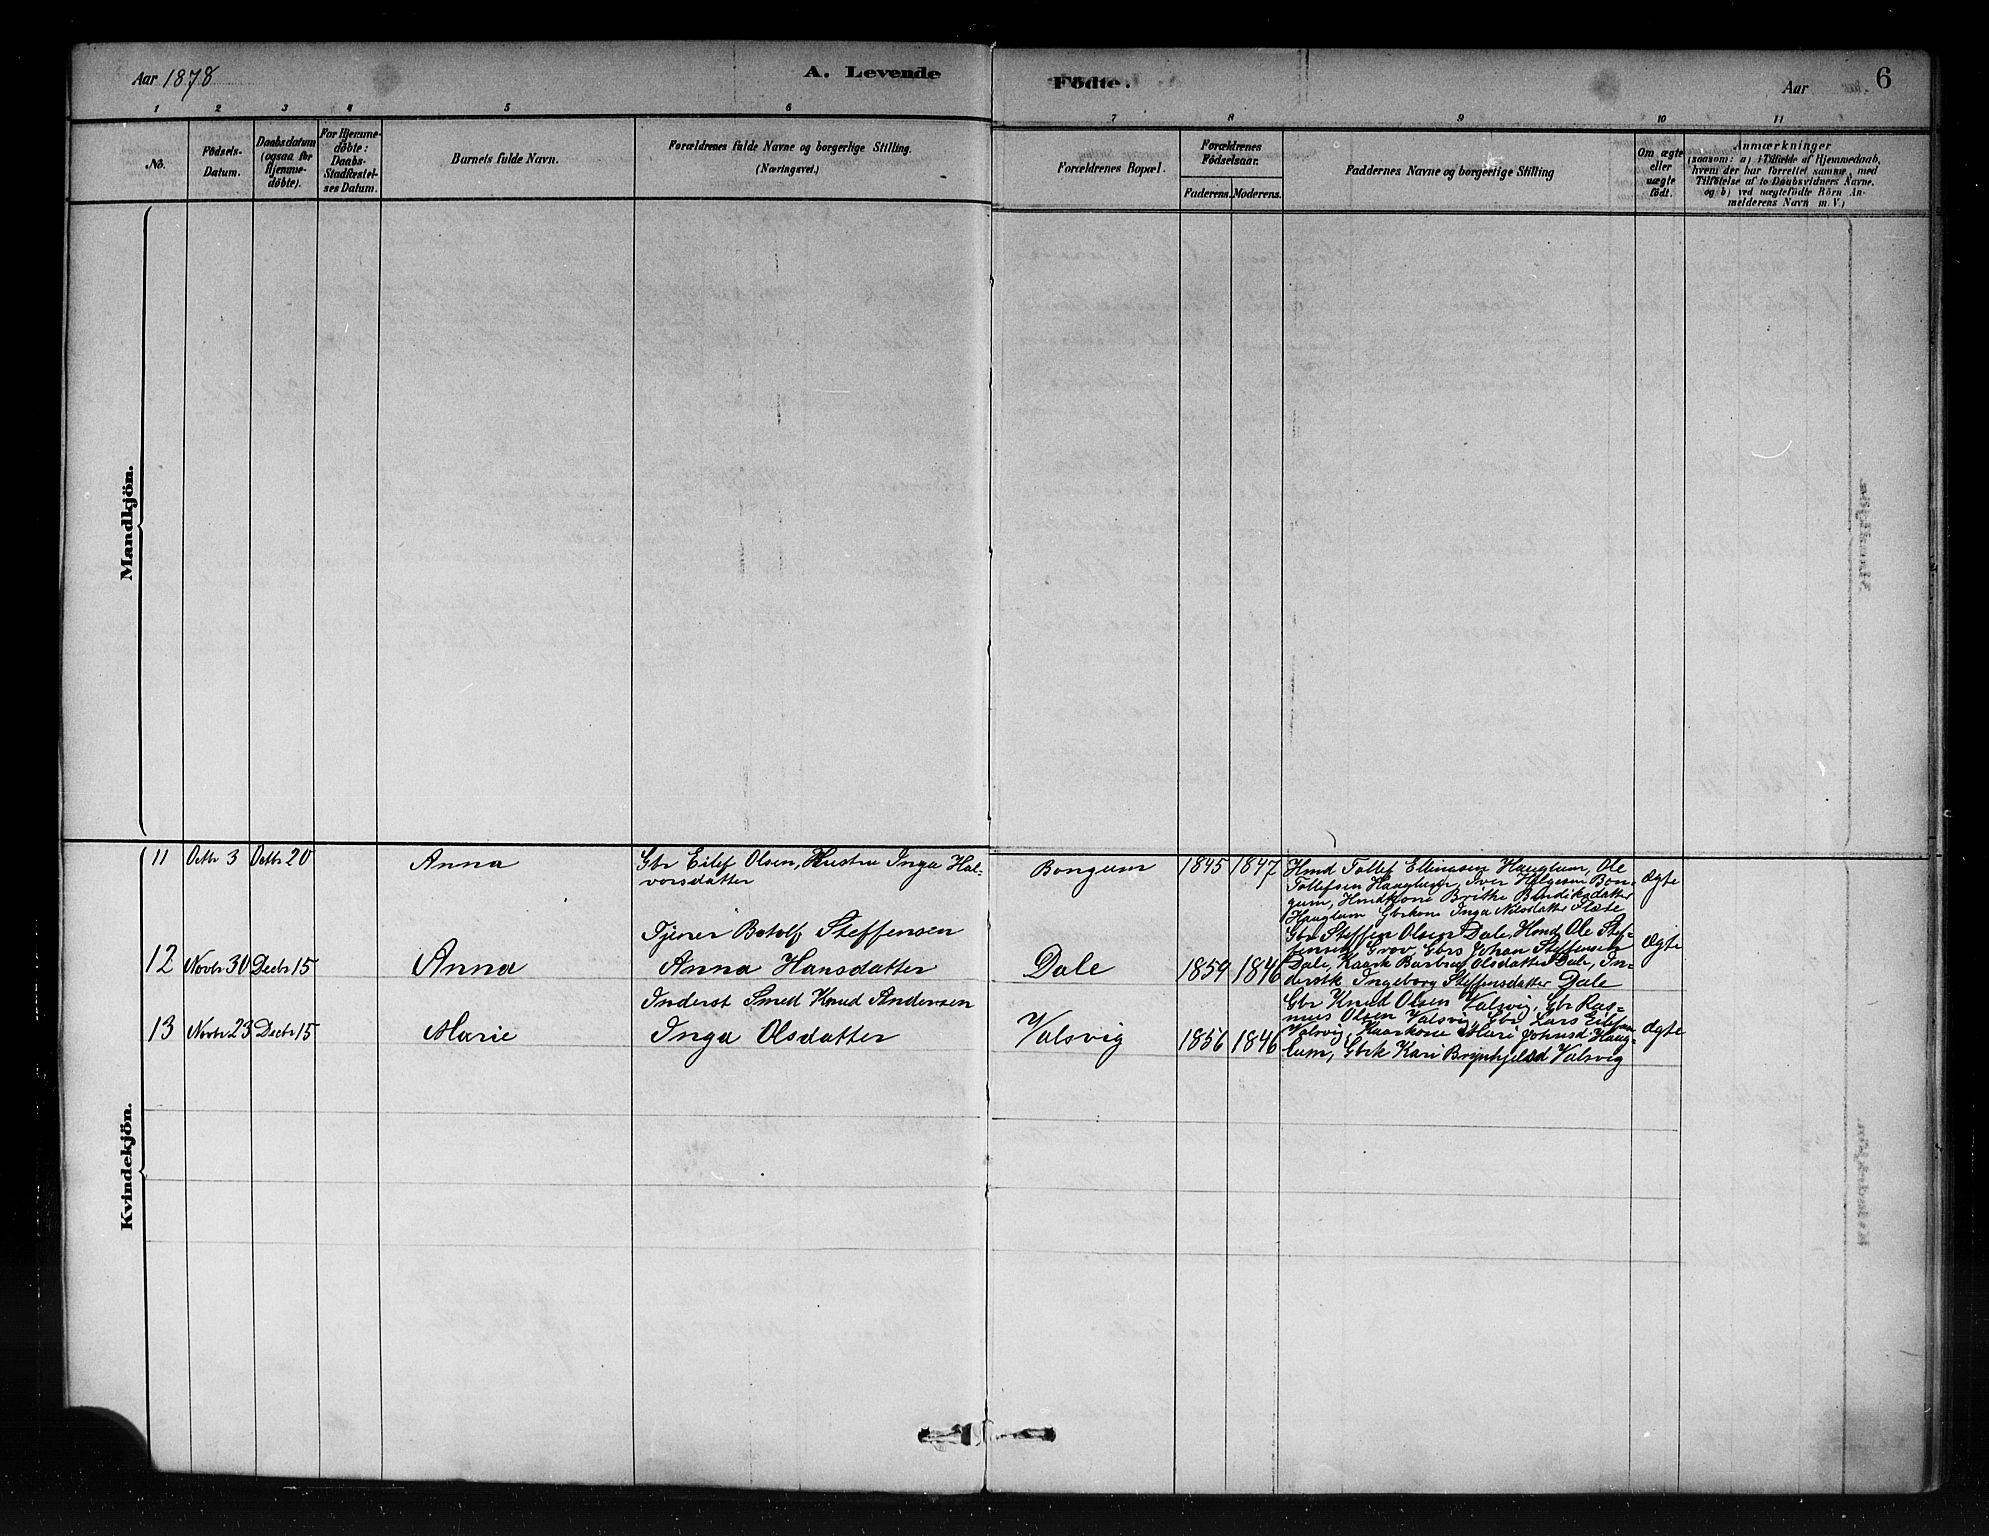 Aar 1878
A. Levende
Födte.
Aar
6
1 2 3 4 5 6 7 8 9 10 11
No.
Födsels-
Datum.
Daabsdatum
(ogsaa for
Hjemme-
döbte).
For Hjemme-
döbte:
Daabs-
Stadfæstel-
ses Datum.
Barnets fulde Navn.
Forældrenes fulde Navne og borgerlige Stilling.
(Næringsvei.)
Forældrenes Bopæl.
Forældrenes
Födselsaar.
Faderens. Moderens.
Faddernes Navne og borgerlige Stilling
Om ægte
eller
uægte
födt.
Anmærkninger
(saasom: a) i Tilfælde af Hjemmedaab,
hvem der har forrettet samme, med
Tilföielse af to Daabsvidners Navne,
og b) ved uægtefödte Börn An-
melderens Navn m. V.)
Mandkjön.
Kvindekjön.
11 Octbr 3 Octbr 20
Anna
Gbr Eilef Olsen, Hustru Inga Hal-
vorsdatter
Bongum
1845 1847
Hmd Tollef Ellingsen Haugtum, Ole
Tollefsen Haugtum, Iver Helgesen Bon-
gum, Hmdkone Brithe Bendiksdatter
Haugtum Gbrkone Inga Nilsdatter Flæte
Ægte
12 Novbr 30 Decbr 15
Anna
Tjener Botolf Steffensen
Anna Hansdatter
Dale
1859 1846
Gbr Steffen Olsen Dale, Hmd Ole Stef-
fensen Grov, Gbrs Johan Steffensen
Dale, Kaark Barbra Olsdatter Dale, In-
derstk Ingeborg Steffensdatter Dale
Ægte
13 Novbr 23 Decbr 15
Marie
Inderst Smed Knud Andersen
Inga Olsdatter
Valsvig
1856 1846
Gbr Knud Olsen Valsvig, Gbr Ras-
mus Olsen Valsvig, Gbr Lars Eilefsen
Valsvig, Kaarkone Mari Johnsd Haug-
lum, Gbrk Kari Brynhjelsd Valsvig
Ægte